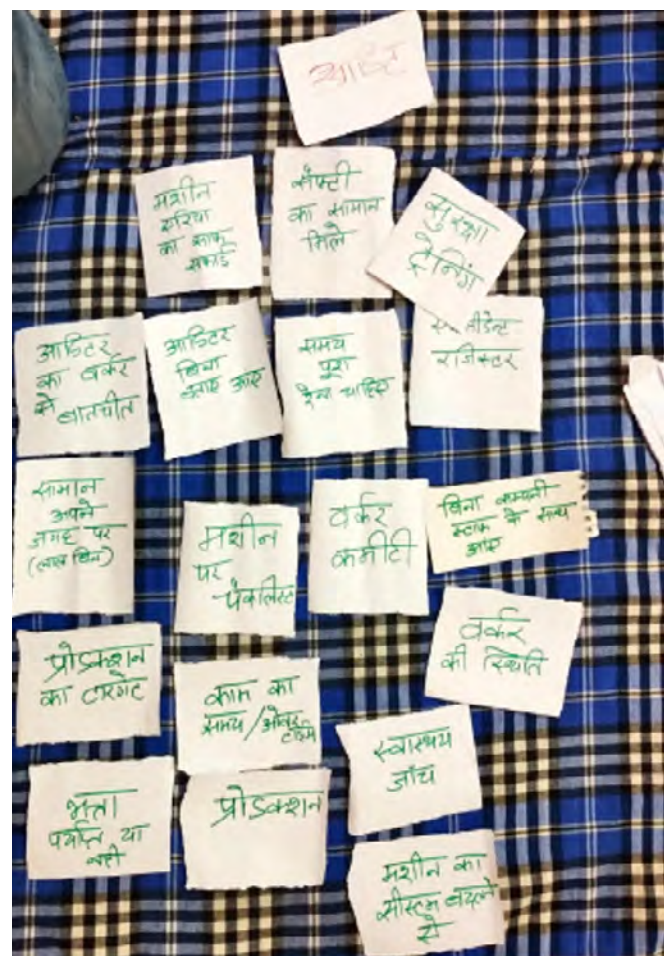 मशीन
एरिया
का साफ
सफाई
सेफ्टी
का सामान
मिले
सुरक्षा
ट्रेनिंग
आडिटर
का वर्कर
से
बातचीत
आडिटर
बिना
बताए आए
समय
पूरा
देना चाहिए
रजिस्टर
सामान
अपने
जगह पर
(लाल बिन)
मशीन
पर
चेकलिस्ट
वर्कर
कमीटी
बिना कम्पनी
स्टाफ के साथ
आए
प्रोडक्शन
का टारगेट
काम का
समय/ओवर
टाईम
वर्कर
की स्थिति
भत्ता
पर्याप्त या
नही
प्रोडक्शन
स्वास्थय
जाँच
मशीन का
सीस्टम बदलने
से